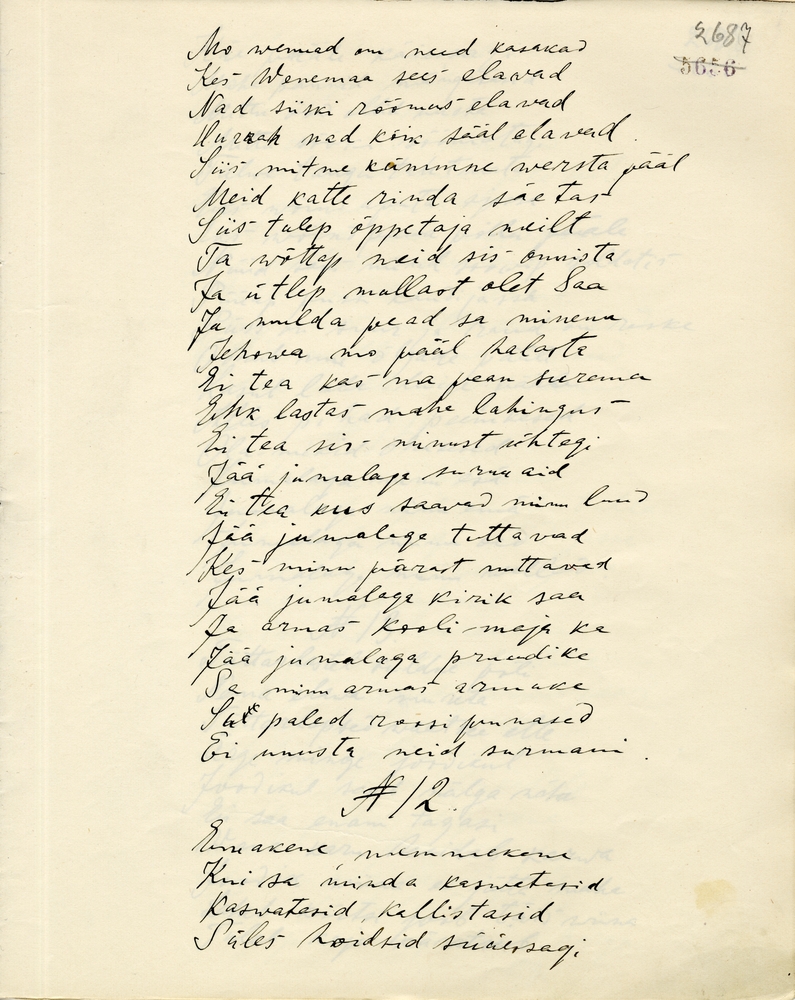 2687
5656
Mo wennad om need kasakad
Kes Wenemaa sees elawad
Nad siiski rõõmus elawad
Hurrah nad kõik sääl elawad.
Siis mitme kümmne wersta pääl
Meid katte rinda säetas
Siis tulep õppetaja meilt
Ta wõttap neid sis onnista
Ja ütlep mullast olet Saa
Ja mulda pead sa minema
Jehowa mo pääl halasta
Ei tea kas ma pean surema
Ehk lastas mahe lahingus
Ei tea sis minust ühtegi
Jää jumalaga surnuaid
Ei tea kus saavad minu luud
Jää jumalaga tuttavad
Kes minu pärast nuttavad
Jää jumalaga kirik saa
Ja armas kooli-maja ka
Jää jumalaga pruudike
Sa minu armas armuke
paled roosi punased
Ei unusta neid surmani.
N 12.
Emakene, memmekene
Kui sa minda kaswatesid
Kaswatesid, kallistasid
Süles hoidsid